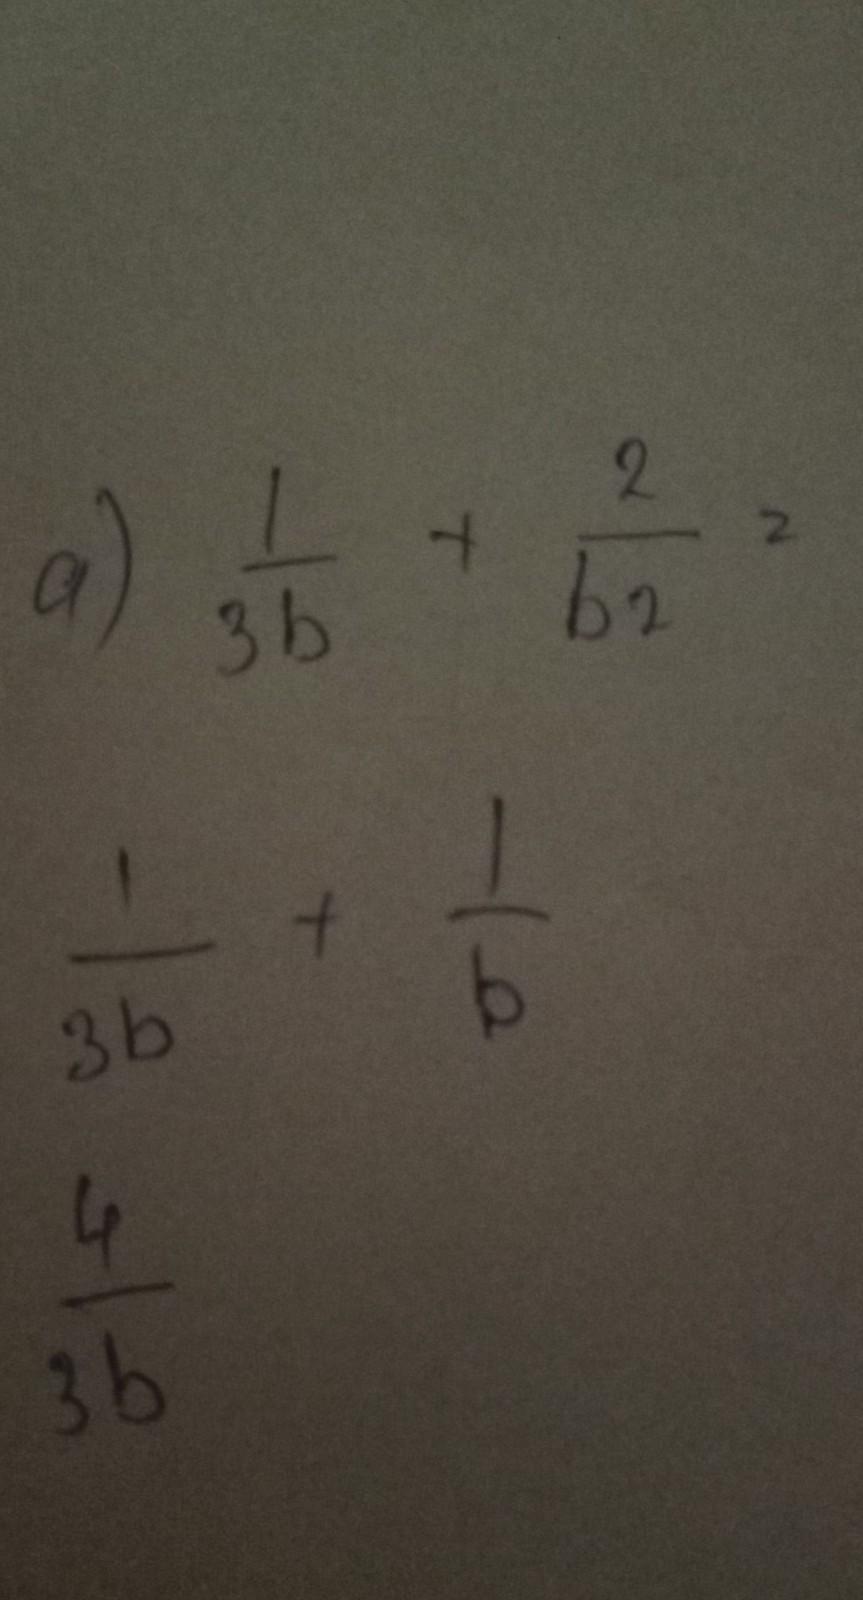 a) 1/3b + 2/b2 =
1/3b + 1/b
4/3b